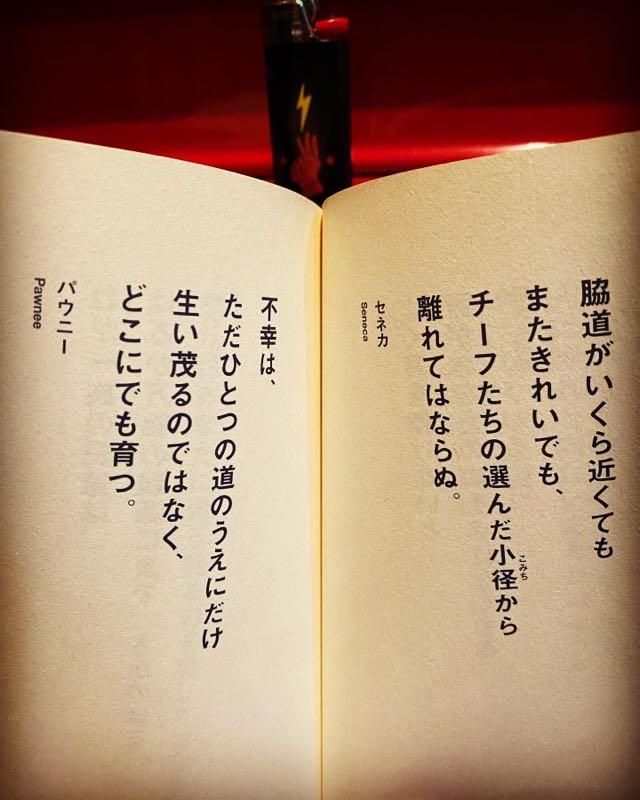 脇道がいくら近くても
またきれいでも、
チーフたちの選んだ小径から
こみち
離れてはならぬ。
セネカ
Seneca
不幸は、
ただひとつの道のうえにだけ
生い茂るのではなく、
どこにでも育つ。
パウニー
Pawnee